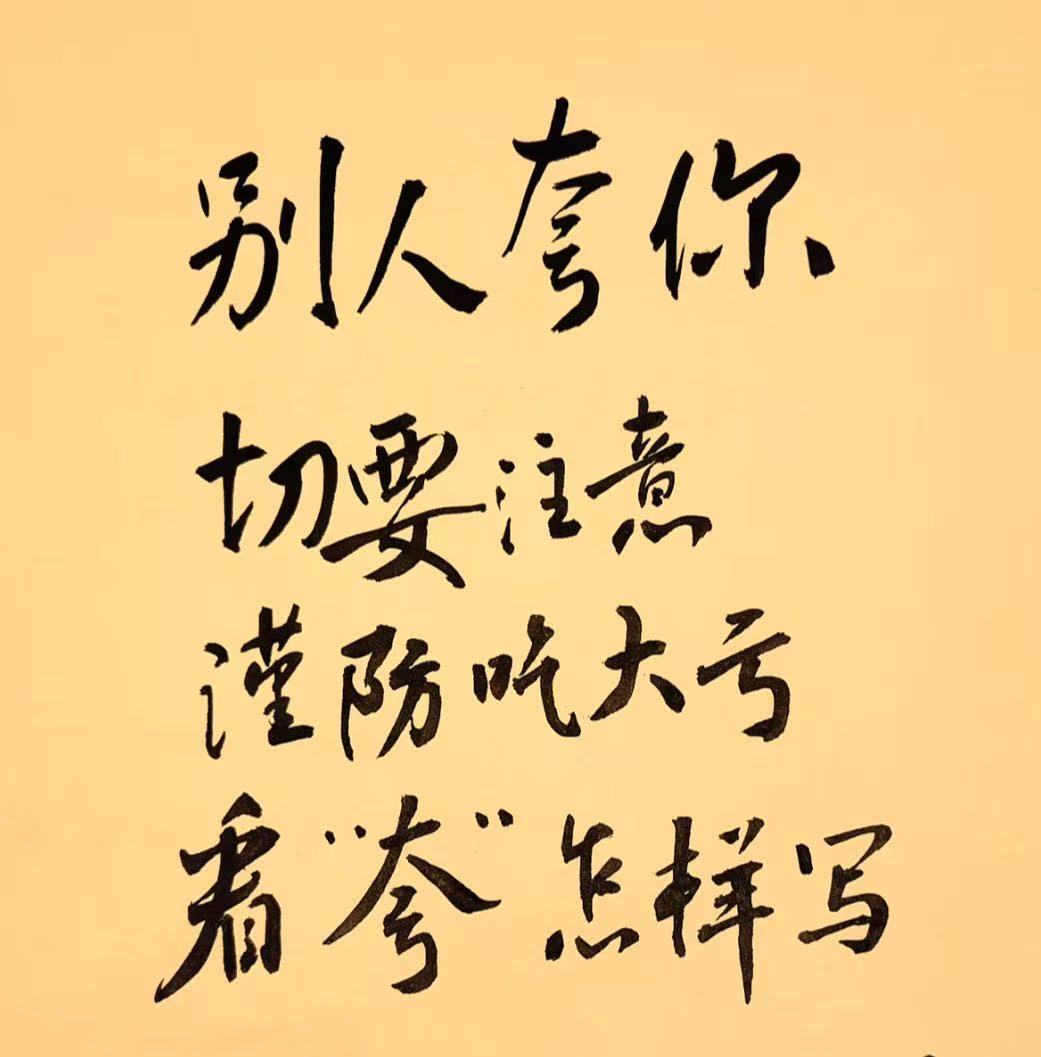 别人夸你
切要注意
谨防吃大亏
看“夸”怎样写